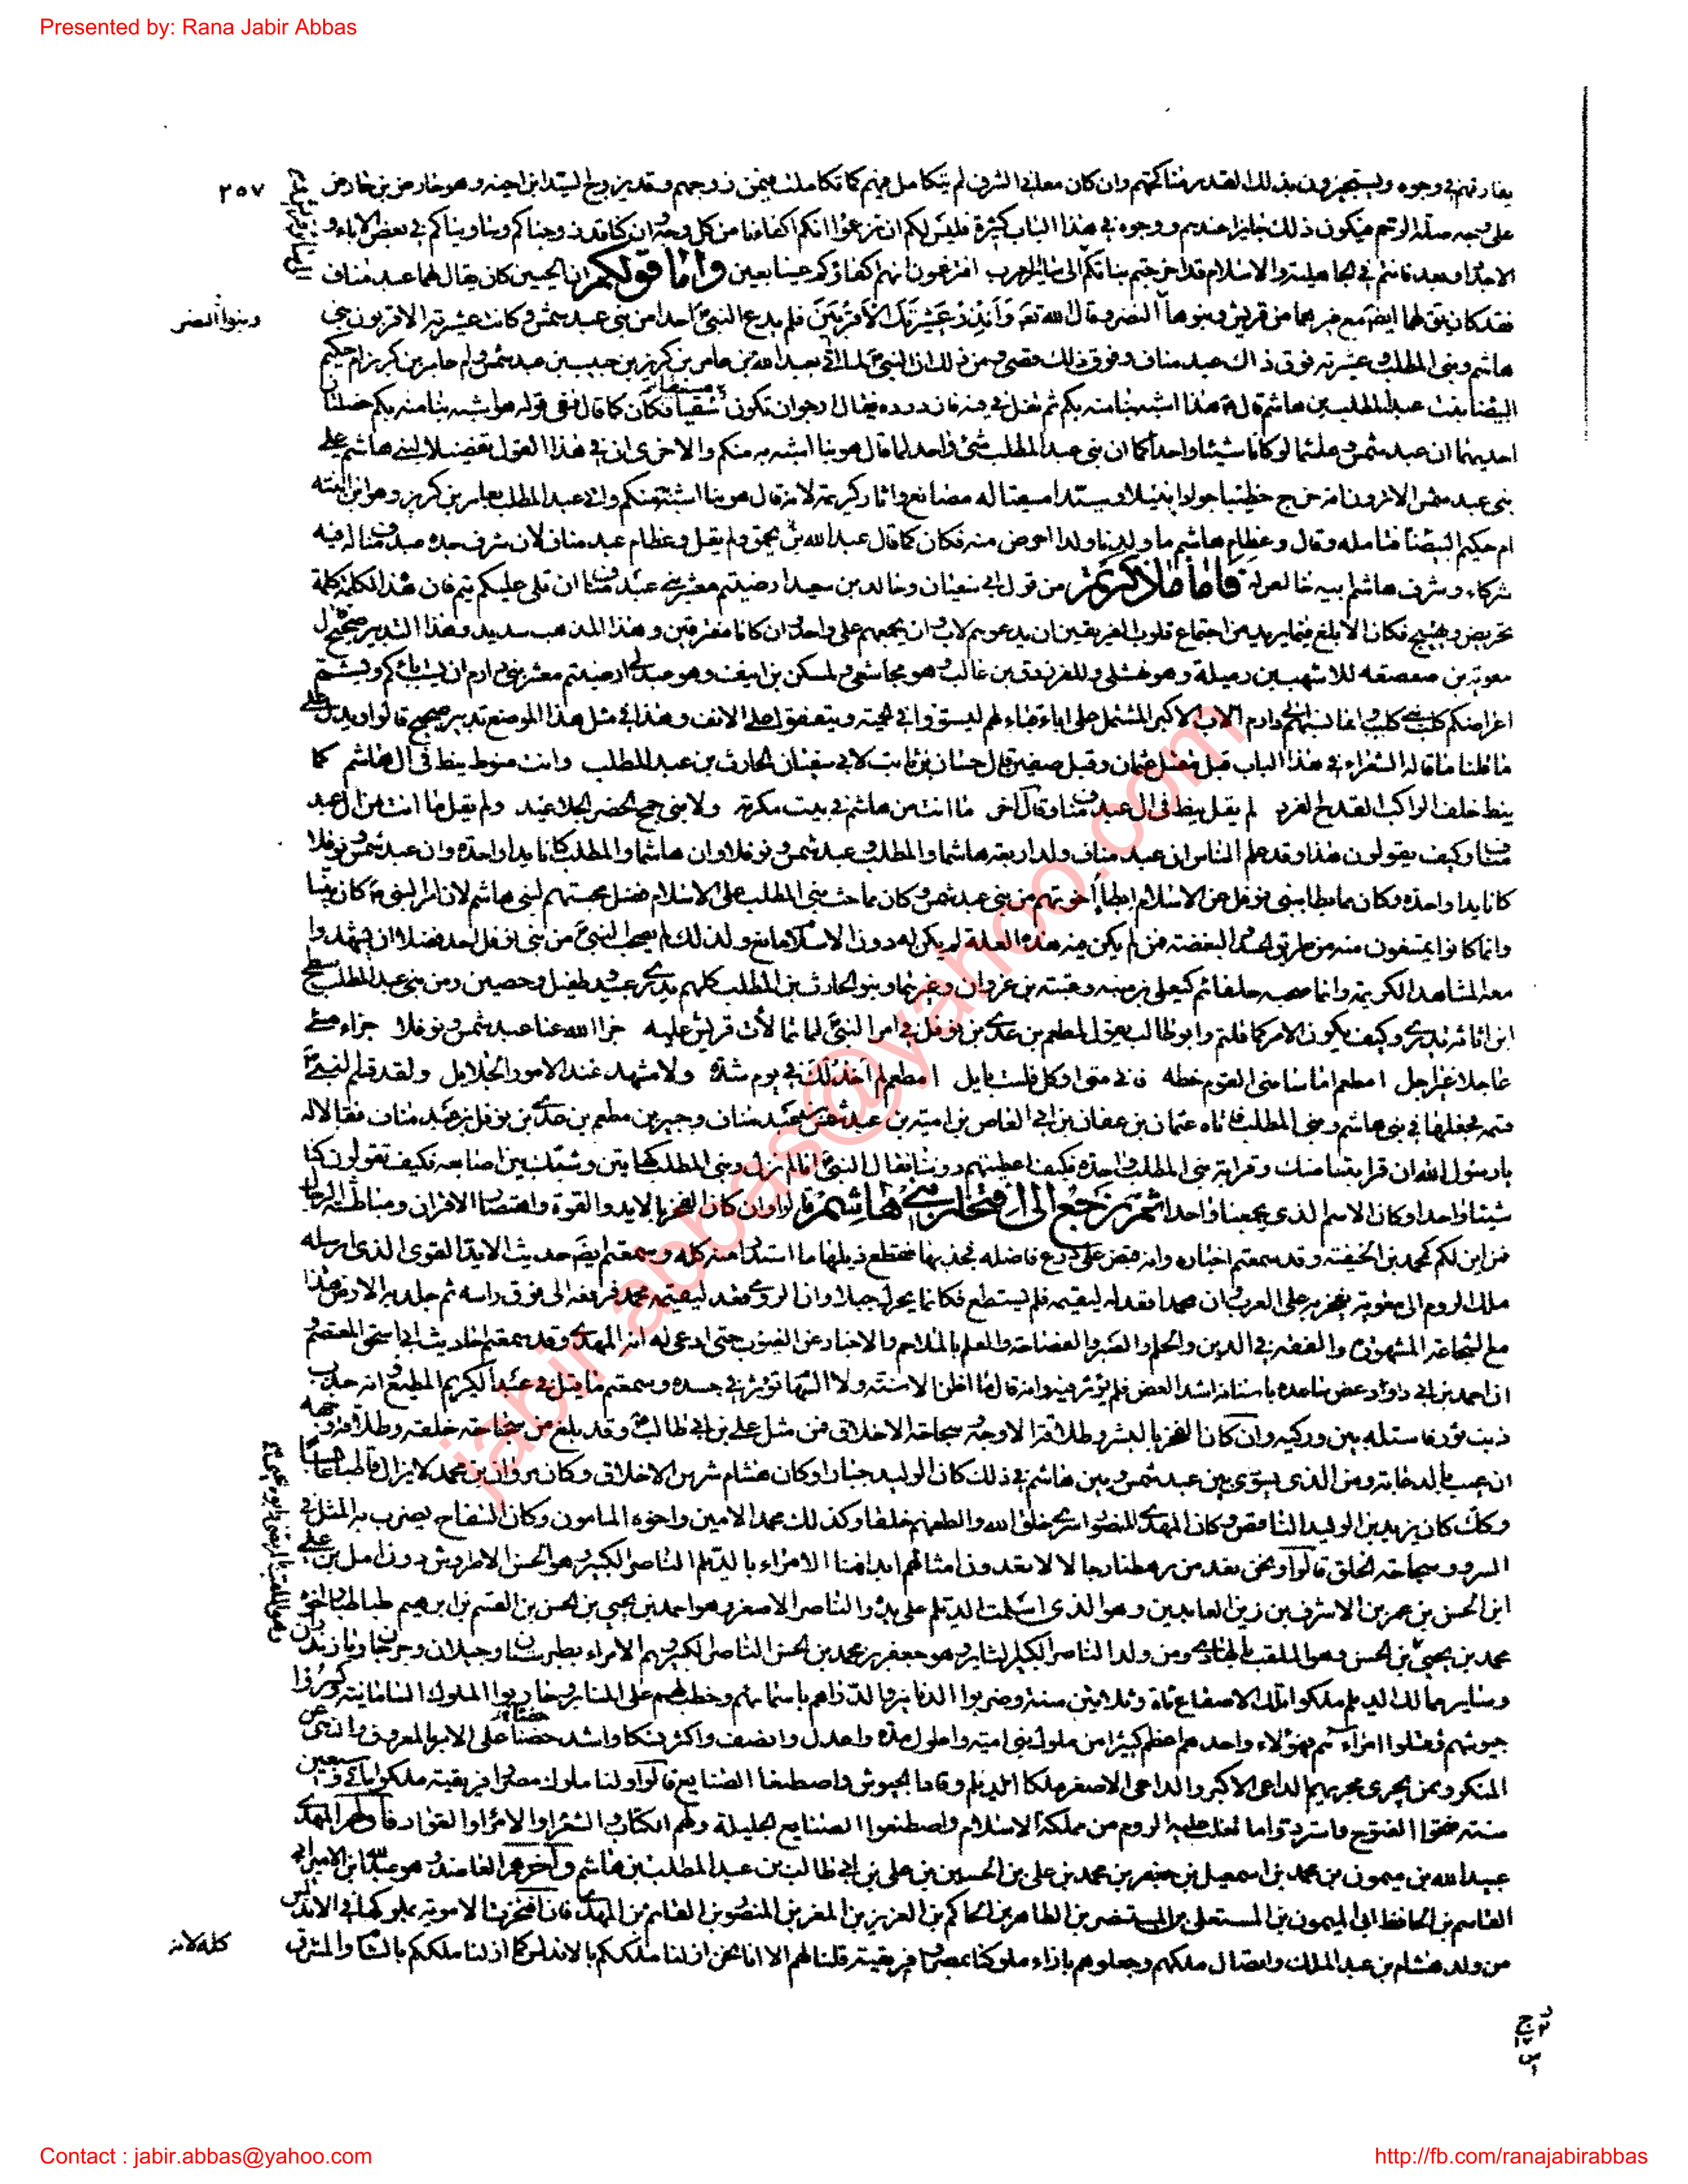 Presented by: Rana Jabir Abbas
٢٥٧
يفارقهم في وجوه ويستجيزون بذلك القدر مناكحتهم وان كان معدن الشرف لم يتكامل فيهم كما تكاملت فيمن زوجهم وقد يزوج السيد ابن اخيه وهو حارض بن حارض
على وجه صلة الرحم فيكون ذلك جايزا عندهم ووجوه في هذا الباب كثيرة فليس لكم ان تزعموا انكم اكفاءنا من كل وجه وان كنا قد زوجناكم وساويناكم في بعض الاباء و
الاجداد وبعد فانتم في الجاهلية والاسلام قد اخرجتم بناتكم الى ساير العرب افتزعمون انهم كفاؤكم عينا بعين واما قولكم ان الحيين كان يقال لهما عبد مناف
فقد كان يقال لهما ايضا مع غيرهما من قريش وبنوها النضر وقال الله تعالى وَأَنْذِرْ عَشِيرَتَكَ الْأَقْرَبِينَ فلم يدع النبي احدا من بني عبد شمس وكانت عشيرته الاقربون بني
وبنوا النضر
هاشم وبني المطلب وعشيرته فوق ذاك عبد مناف وفوق ذلك قصي ومن ذلك ان النبي لما اتي بعبد الله بن عامر بن كريز بن حبيب بن عبد شمس وام عامر بن كريز ام حكيم
البيضا بنت عبد المطلب بن هاشم قال هذا اشبه بنا منه بكم ثم تفل في فيه فازدرده فقال ارجو ان تكون مسقيا فكان كما قال ففي قوله هو اشبه بنا منه بكم خصلتان
احديهما ان عبد شمس وهاشما لو كانا شيئا واحدا كما ان بني عبد المطلب شئ واحد لما قال هو بنا اشبه به منكم والاخرى ان في هذا القول تفضيلا لبني هاشم على
بني عبد شمس الا ترون انه خرج خطيبا جوادا نبيلا وسيدا مصقعا له مصانع واثار كريمة لانه قال هو بنا اشبه منكم واتى عبد المطلب بعامر بن كريز وهو ابن ابنته
ام حكيم البيضا فتامله وقال وعظام هاشم ما ولدنا ولدا احوض منه فكان كما قال عبد الله بن يحمق ولم يقل وعظام عبد مناف لان شرف جده عبد مناف له فيه
شركاء وشرف هاشم ابيه خالص له فاما ما ذكرتم من قول ابي سفيان وخالد بن سعيد ارضيتم معشر بني عبد مناف ان تلي عليكم تيم فان هذا الكلمة كلمة
تحريض وتهييج فكان الابلغ فيما يريد من اجتماع قلوب الفريقين ان يدعوهم لاب وان يجمعهم على واحد وان كانا مفترقين وهذا المذهب سديد وهذا التدبير صحيح قال
معوية بن صعصعه للاشهب بن رميلة وهو نهشلي وللفرزدق بن غالب وهو مجاشعي ولمسكين بن انيف وهو عبدلي ارضيتم معشر بني دارم ان يسب اباءكم ويشتم
اعراضكم كلب بني كليب وانما نسبهم الى دارم الاب الاكبر المشتمل على اباء قبائلهم ليستووا في الحمية ويتفقوا على الانف وهذا في مثل هذا الموضع تدبير صحيح قالوا ويدل على
ما قلنا ما قاله الشعراء في هذا الباب قبل مقتل عثمان وقبل صفين قال حسان بن ثابت لابي سفيان الحارث بن عبد المطلب وانت منوط نيط في ال هاشم كما
نيط خلف الراكب القدح الفرد لم يقل نيط في ال عبد مناف وقال اخر ما انت من هاشم في بيت مكرمة ولا بني جمح الخضر الجلاعيد ولم يقل ما انت من ال عبد
مناف وكيف يقولون هذا وقد علم الناس ان عبد مناف ولد اربعة هاشما والمطلب وعبد شمس ونوفلا وان هاشما والمطلب كانا يدا واحدة وان عبد شمس ونوفلا
كانا يدا واحدة وكان مما بطا ببني نوفل عن الاسلام ابطاء اخوتهم من بني عبد شمس وكان مما حث بني المطلب على الاسلام فضل محبتهم لبني هاشم لان امر النبي كان بينا
وانما كانوا يمتنعون منه من طريق الحسد والبغضة فمن لم يكن فيه هذه العلة لم يكن له دون الاسلام مانع ولذلك لم يصحب النبي من بني نوفل احد فضلا ان يشهدوا
معه المشاهد الكريمة وانما صحبه حلفائهم كيعلى بن منيه وعتبة بن غزوان وغيرهما وبنو الحارث بن المطلب كلهم بدري عبيد وطفيل وحصين ومن بني عبد المطلب مسطح
ابن اثاثة بدري وكيف يكون الامر كما قلتم وابو طالب يقول لمطعم بن عدي بن نوفل في امر النبي لما تمالأت قريش عليه جزا الله عنا عبد شمس ونوفلا جزاء مسئ
عاجلا غير اجل امطعم اما سامني القوم خطة فاني متى اوكل فلست بايل امطعم لم اخذلك في يوم شدة ولا مشهد عند الامور الجلايل ولقد قسم النبي
قسمة فجعلها في بني هاشم وبني المطلب فاتاه عثمان بن عفان بن ابي العاص بن امية بن عبد شمس بن عبد مناف وجبير بن مطعم بن عدي بن نوفل بن عبد مناف فقالا له
يا رسول الله ان قرابتنا منك وقرابة بني المطلب واحدة فكيف اعطيتهم دوننا فقال النبي انا لم نزل وبني المطلب كهاتين وشبك بين اصابعه فكيف تقولون كنا
شيئا واحدا وكان الاسم الذي يجمعنا واحدا ثم نرجع الى افتخار بني هاشم قالوا وان كان الفخر بالايد والقوة واهتصار الاقران ومباطشة الرجال
فمن اين لكم كمحمد بن الحنفية وقد سمعتم اخباره وانه قبض على درع فاضله فجذبها فقطع ذيلها ما استدار منه كله وسمعتم ايضا حديث الايد القوي الذي ارسله
ملك الروم الى معوية يفخر به على العرب وان محمدا قعد له ليقيمه فلم يستطع فكانما يحرك جبلا وان الرومي قعد ليقيمه محمد فرفعه الى فوق راسه ثم جلد به الارض هذا
مع الشجاعة المشهورة والفقه في الدين والحلم والصبر والفصاحة والعلم بالملاحم والاخبار عن الغيوب حتى ادعي له انه المهدي وقد سمعتم احاديث ابي اسحق المعتصم و
ان احمد بن ابي دواد عض ساعده باسنانه اشد العض فلم يؤثر فيه وانه قال ما اظن الاسنة ولا السهام تؤثر في جسده وسمعتم ما قيل في عبد الكريم المطيع انه جذب
ذنب ثور فاستله من بين وركيه وان كان الفخر بالبشر وطلاقة الاوجه وسجاحة الاخلاق فمن مثل علي بن ابي طالب وقد بلغ من سجاحة خلقه وطلاقة وجهه
ان عيب بالدعابة ومن الذي يسوي بين عبد شمس وبين هاشم في ذلك كان الوليد جبارا وكان هشام شرس الاخلاق وكان مروان بن محمد لا يزال قاطبا عابسا
وكذلك كان يزيد بن الوليد الناقص وكان المهدي المنصور اسرى خلق الله والطفهم خلقا وكذلك محمد الامين واخوه المامون وكان السفاح يضرب به المثل في
السرو وسجاحة الخلق قالوا ونحن نعد من رهطنا رجالا لا تعدون امثالهم ابدا فمنا الامراء بالديلم الناصر الكبير وهو الحسن الاطروش بن علي
ابن الحسن بن عمر بن الاشرف بن زين العابدين وهو الذي اسلمت الديلم على يده والناصر الاصغر وهو احمد بن يحيى بن الحسن بن القسم بن ابرهيم طباطبا واخوه
محمد بن يحيى بن الحسن وهو الملقب بالهادي ومن ولد الناصر الكبير الثاير وهو جعفر بن محمد بن الحسن الناصر الكبير وهم الامراء بطبرستان وجيلان وجرجان ومازندران
وساير ممالك الديلم ملكوا تلك الاصقاع مائة وثلاثين سنة وضربوا الدنانير والدراهم باسمائهم وخطب لهم على المنابر وحاربوا الملوك السامانية وكسروا
جيوشهم وقتلوا امراءهم فهؤلاء واحدهم اعظم كثيرا من ملوك بني امية واطول مدة واعدل وانصف واكثر نسكا واشد حضا على الامر بالمعروف والنهي عن
المنكر وممن يجري مجريهم الداعي الاكبر والداعي الاصغر ملكا الديلم وقادا الجيوش واصطنعا الصنايع قالوا ولنا ملوك مصر وافريقية ملكوا مائتي وسبعين
سنة فتحوا الفتوح واستردوا ما تغلب عليه الروم من مملكة الاسلام واصطنعوا الصنايع الجليلة ولهم الكتاب والشعراء والامراء والقواد فاولهم المهدي
عبيد الله بن ميمون بن محمد بن اسمعيل بن جعفر بن محمد بن علي بن الحسين بن علي بن ابي طالب بن عبد المطلب بن هاشم واخرهم العاضد وهو عبد الله ابن الامير ابي
القاسم بن الحافظ ابي الميمون بن المستعلي بن المستنصر بن الطاهر بن الحاكم بن العزيز بن المعز بن المنصور بن القايم بن المهدي فان افتخرت الاموية بملوكها في الاندلس
من ولد هشام بن عبد الملك واتصال ملكهم وجعلوهم بازاء ملوكنا بمصر وافريقية قلنا لهم الا انا نحن ازلنا ملككم بالاندلس كما ازلنا ملككم بالشام والمشرق
كله لانه
jabir.abbas@yahoo.com
Contact : jabir.abbas@yahoo.com
http://fb.com/ranajabirabbas